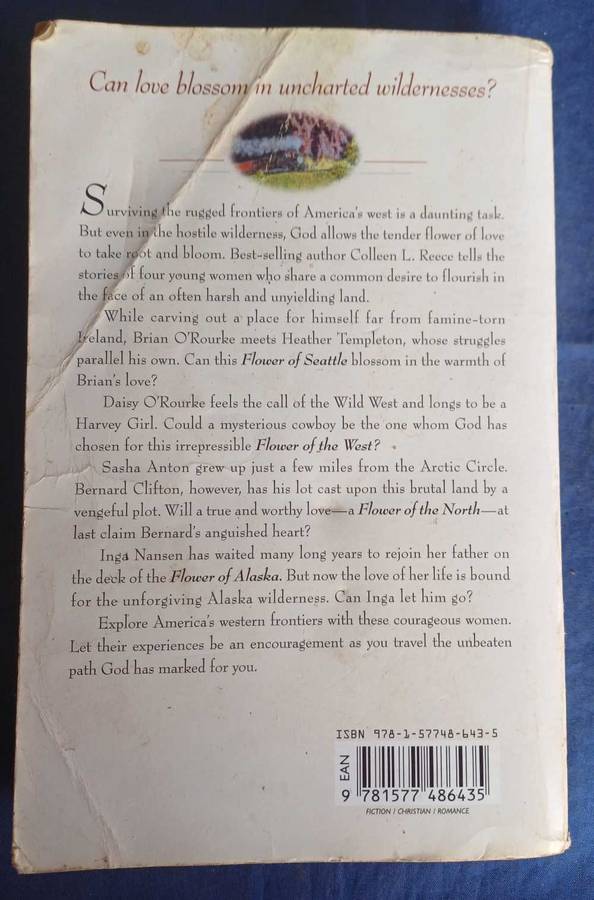 Can love blossom in uncharted wildernesses?
Surviving the rugged frontiers of America's west is a daunting task.
But even in the hostile wilderness, God allows the tender flower of love
to take root and bloom. Best-selling author Colleen L. Reece tells the
stories of four young women who share a common desire to flourish in
the face of an often harsh and unyielding land.
While carving out a place for himself far from famine-torn
Ireland, Brian O'Rourke meets Heather Templeton, whose struggles
parallel his own. Can this Flower of Seattle blossom in the warmth of
Brian's love?
Daisy O'Rourke feels the call of the Wild West and longs to be a
Harvey Girl. Could a mysterious cowboy be the one whom God has
chosen for this irrepressible Flower of the West?
Sasha Anton grew up just a few miles from the Arctic Circle.
Bernard Clifton, however, has his lot cast upon this brutal land by a
vengeful plot. Will a true and worthy love—a Flower of the North—at
last claim Bernard's anguished heart?
Inga Nansen has waited many long years to rejoin her father on
the deck of the Flower of Alaska. But now the love of her life is bound
for the unforgiving Alaska wilderness. Can Inga let him go?
Explore America's western frontiers with these courageous women.
Let their experiences be an encouragement as you travel the unbeaten
path God has marked for you.
ISBN 978-1-57748-643-5
EAN
9 781577 486435
FICTION / CHRISTIAN / ROMANCE